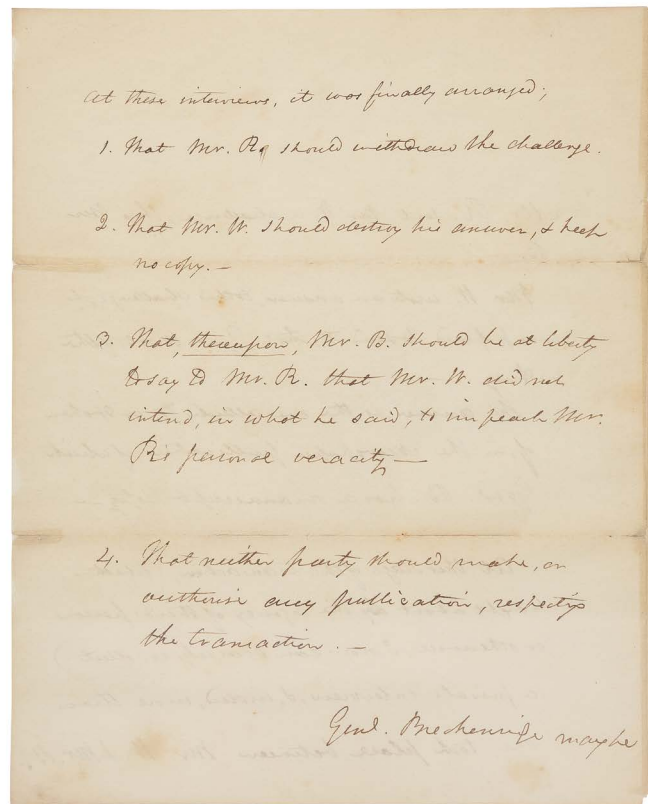 At these interviews, it was finally arranged;
1. That Mr. R. should withdraw the challenge.
2. That Mr. W. should destroy his answer, & keep
no copy. —
3. That, thereupon, Mr. B. should be at liberty
to say to Mr. R. that Mr. W. did not
intend, in what he said, to impeach Mr.
R's personal veracity —
4. That neither party should make, or
authorise any publication, respecting
the transaction. —
Genl. Breckenridge maybe